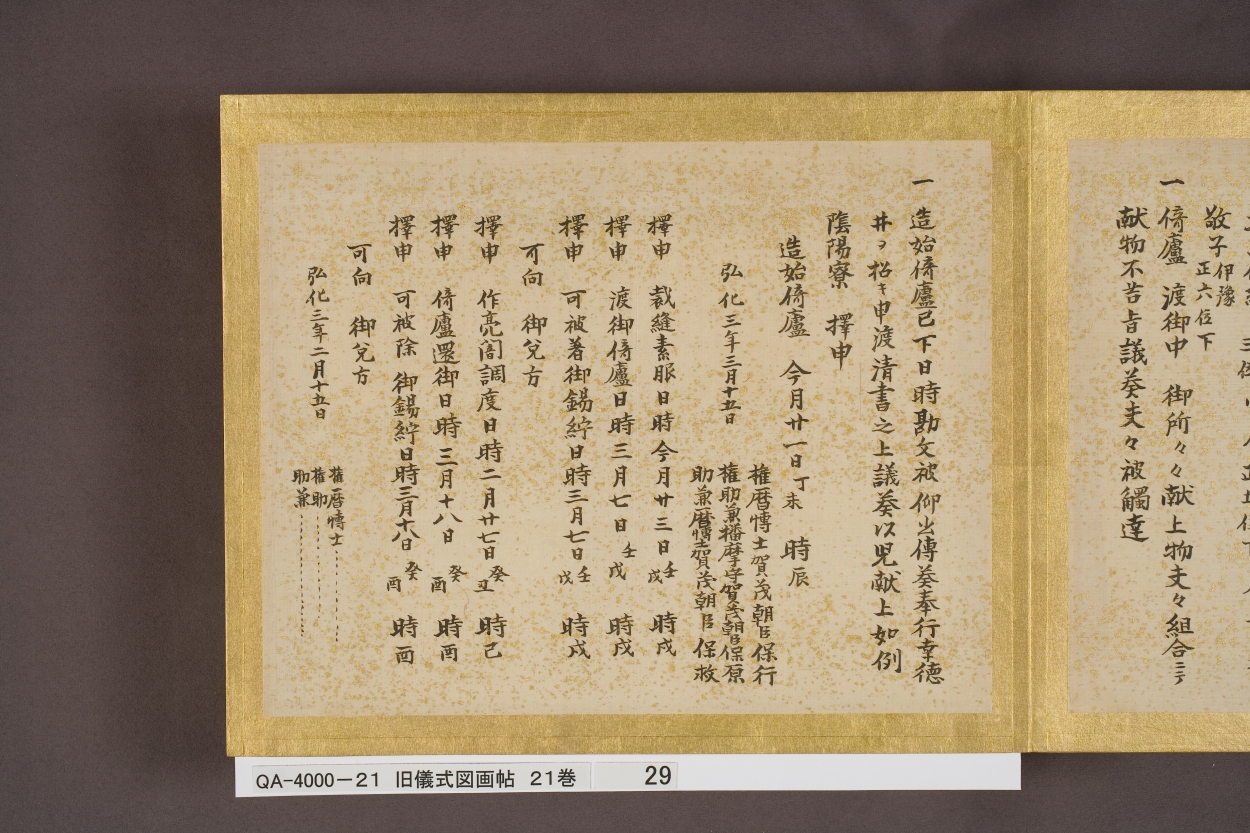 敬子伊豫正六位下
一倚廬 渡御中 御所々々献上物夫々組合ニテ
献物不苦旨議奏夫々被觸達
一造始倚廬已下日時勘文被仰出傳奏奉行幸德
井ヲ招キ申渡清書之上議奏以児献上如例
陰陽寮 擇申
造始倚廬 今月廿一日丁未 時辰
權暦博士賀茂朝臣保行
弘化三年三月十五日 權助兼播磨守賀茂朝臣保原
助兼暦博士賀茂朝臣保救
擇申 裁縫素服日時 今月廿三日壬戌 時戌
擇申 渡御倚廬日時 三月七日壬戌 時戌
擇申 可被著御錫紵日時 三月七日壬戌 時戌
可向 御兌方
擇申 作亮闇調度日時 二月廿七日癸丑 時己
擇申 倚廬還御日時 三月十八日癸酉 時酉
擇申 可被除 御錫紵日時 三月十八日癸酉 時酉
可向 御兌方
權暦博士
弘化三年二月十五日 權助
助兼
QA-4000-21 旧儀式図画帖 21巻 29